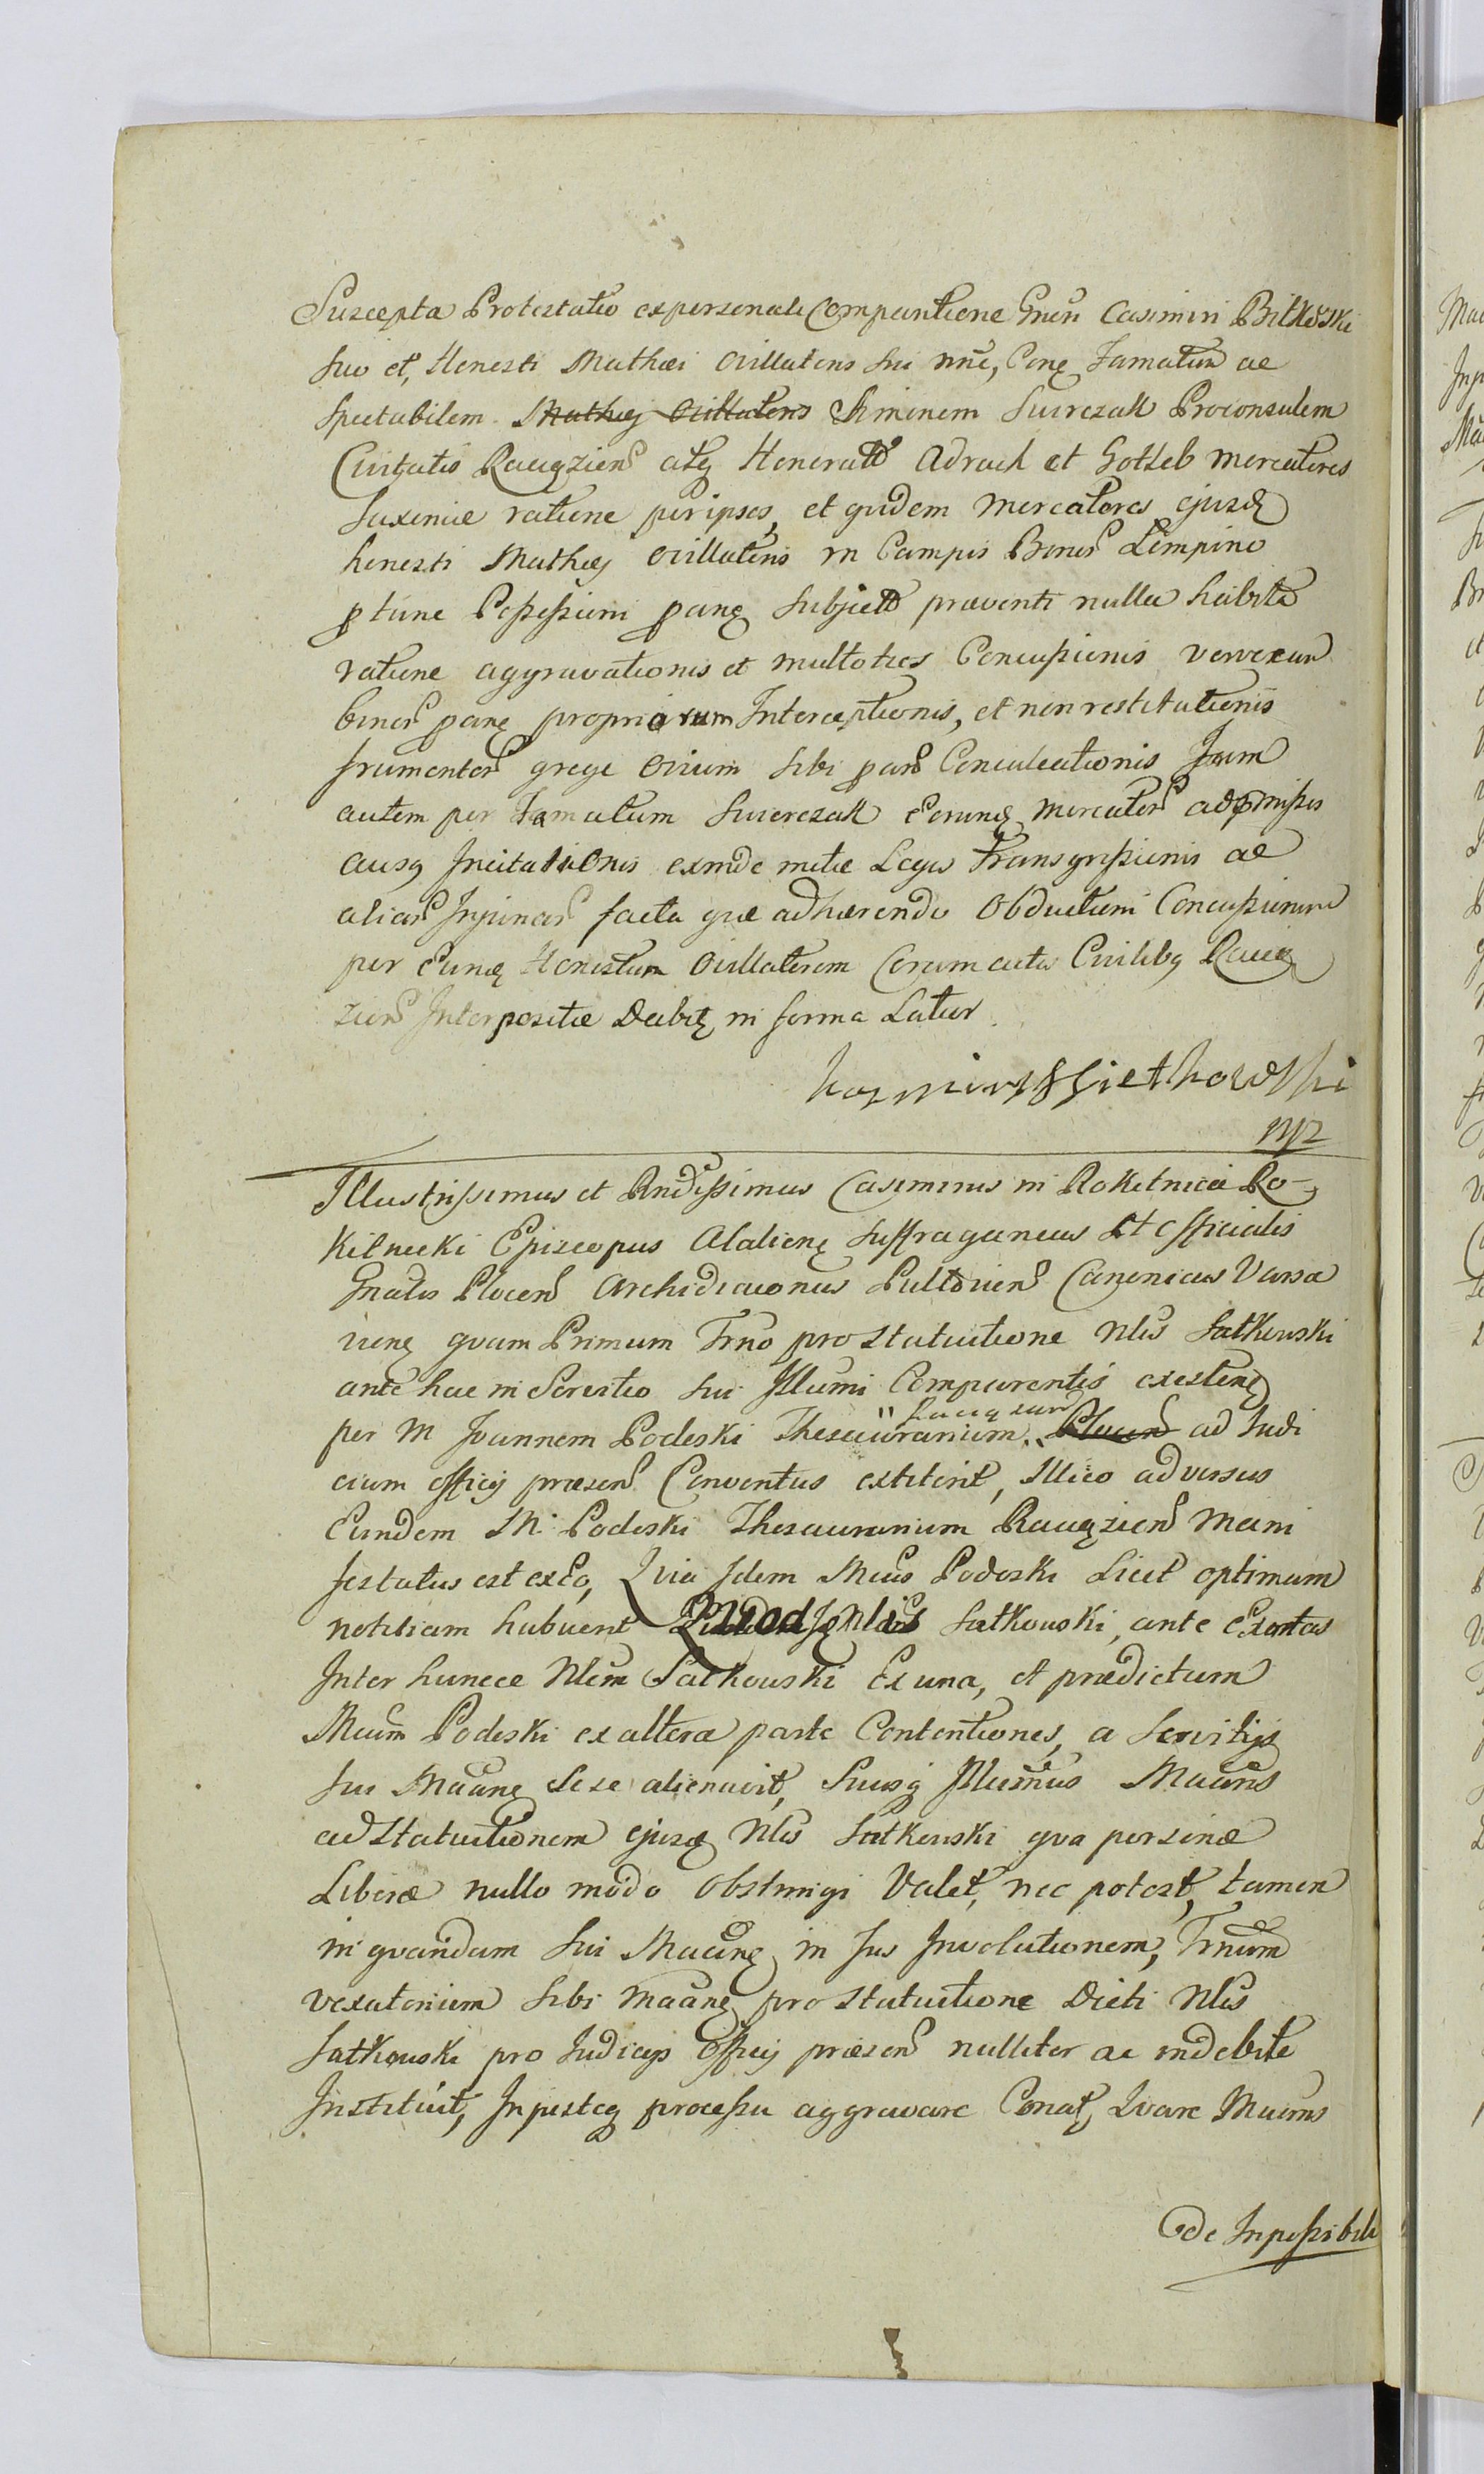 Suscepta Protestatio ex personali Comparitione Gnẽri Casimiri Bitkowski
suo et, Honesti Mathæi Ovillatoris sui nñe, Conq Famatum ac
spectabilem Mathæj Ovillatoris Simonem Swirczak Proconsulem
Civitatis Raciązien̄ atq Honorats Adrach et Gotleb mercatores
Saxoniæ ratione per ipsos, et quidem mercatores ejusd
honesti Mathæj Ovillatoris in Campis Bonor Lempino
p tunc Possessioni pang subject præventi nulla habita
ratione aggravationis et multoties Concussionis vervecum
binor pang propriorum Interceptionis, et non restitutionis
frumentor grege ovium sibi pang Conculcationis Tum
autem per Famatum Swierczak eorund mercator ad præmissa
ausq Incitationis exinde metæ Legis Transgressionis ac
aliar Injuriar facta quæ adhærendo Obductioni Concussionum
per eund Honestum Ovillatorem Coram actis Civilibq Racią
zien̄ Interpositæ Debitq in forma Latur
Kazmirz Bietkowski
mp
Illustrissimus et Rndissimus Casimirus in Rokitnica Ro-
kitnicki Episcopus Alalieng Suffraganeus et officialis
Gnãlis Plocen̄ Archidiaconus Pultovien̄ Canonicus Varsa
vieng quam Primum Trno pro Statuitione Nlis Satkowski
ante hac in Servitio sui Illũmi Comparentis existeng
per M Joannem Podoski Thesaurarium " Raciązien̄ Plocen̄ ad Judi
cium officij præsen̄ Conventus extiterit, Illico adversus
Eundem M. Podoski Thesaurarium Raciązien̄ Mani
festatus est ex eo, Quia Idem Mcus Podoski Licet optimam
notitiam habuerit Quod Nlis Satkowski, ante Exortas
Inter huncce Nlem Satkowski Ex una, et prædictum
Mcum Podoski ex altera parte Contentiones, a Servitijs
sui Maang sese alienavit, Suusq Illũmus Maans
ad Statuitionem ejusd Nlis Satkowski qva personæ
Liberæ nullo modo obstringi Valet, nec potest, tamen
in qvandam sui Maang in Jus Involutionem, Trnum
vexatorium sibi Maang pro Statuitione Dicti Nlis
Satkowski pro Judicijs officij præsen̄ nulliter ac indebite
Instituit, Injusteq processu aggravare Conatq, Qvare Maans
de Inpossibili